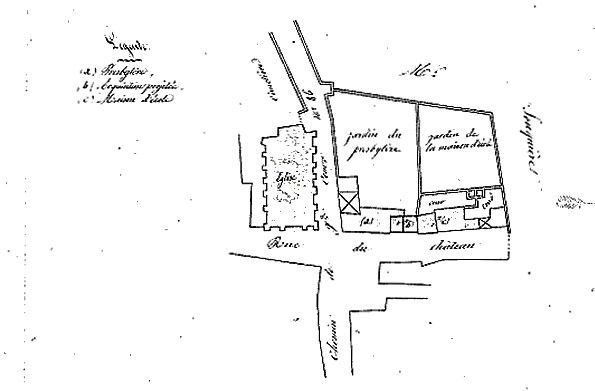 Légende
(a) Presbytère.
(b) Acquisition projetée.
(c) Maison d'école
cimetière
Mr
Spéquières
jardin du
presbytère
jardin de
la maison d'école
Eglise
cour
Cour
(a)
Rue du château
Chemin de gde Comn no 98